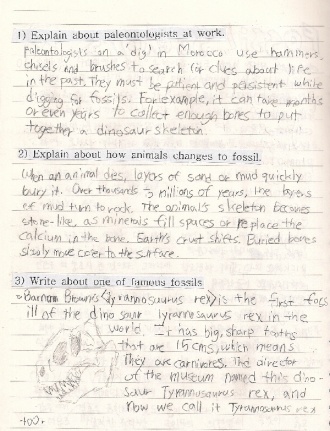 1) Explain about paleontologists at work.
paleontologists on a 'dig' in Morocco use hammers,
chisels and brushes to search for clues about life
in the past. They must be patient and persistent while
digging for fossils. For example, it can take months
or even years to collect enough bones to put
together a dinosaur skeleton.
2) Explain about how animals changes to fossil.
When an animal dies, layers of sand or mud quickly
bury it. Over thousands millions of years, the layers
of mud turn to rock. The animal's skeleton becomes
stone-like, as minerals fill spaces or replace the
calcium in the bone. Earth's crust shifts. Buried bones
slowly move closer to the surface.
3) Write about one of famous fossils
Barnum Brown's (tyrannosaurus rex) is the first foss
ill of the dinosaur tyrannosaurus rex in the
world. It has big, sharp tooths
that are 15 cms, which means
They are carnivores. The director
of the museum named this dino-
saur Tyrannosaurus rex, and
now we call it Tyrannosaurus rex